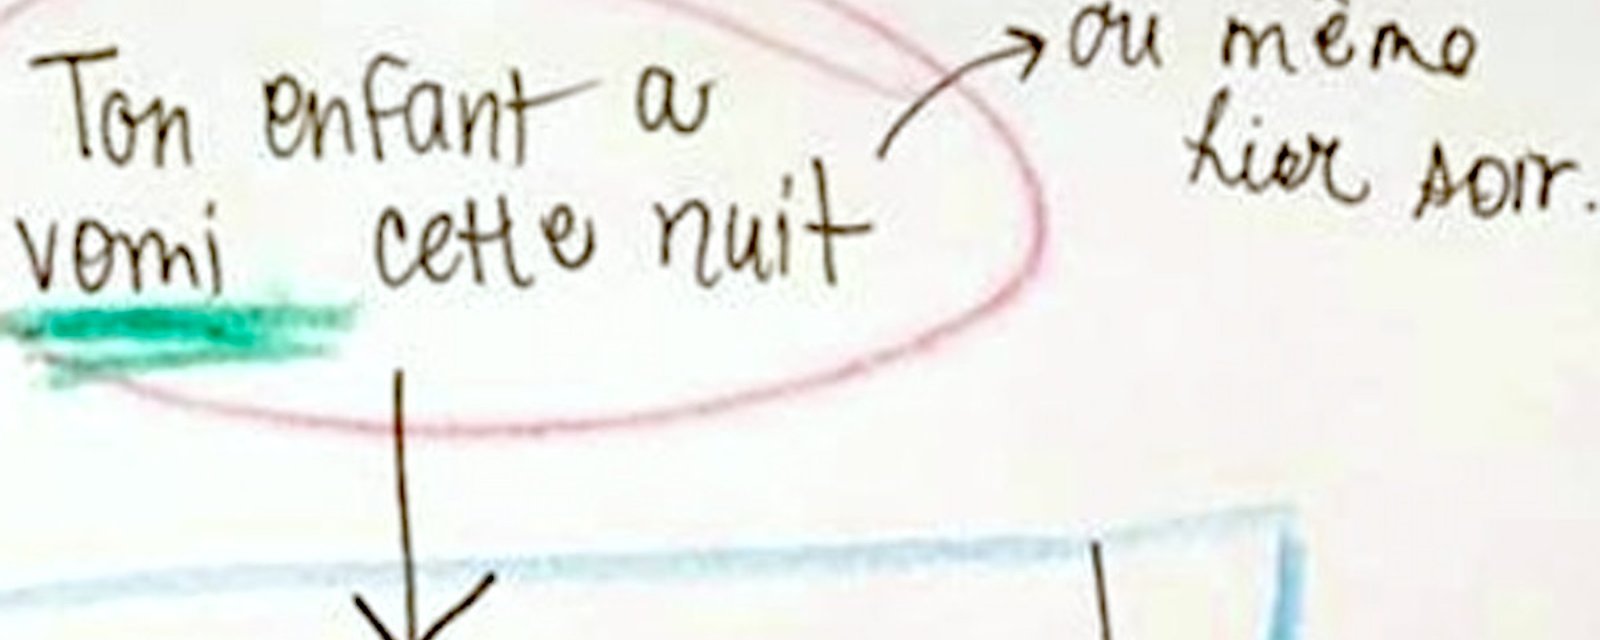 Ton enfant a
vomi cette nuit
ou même
hier soir.